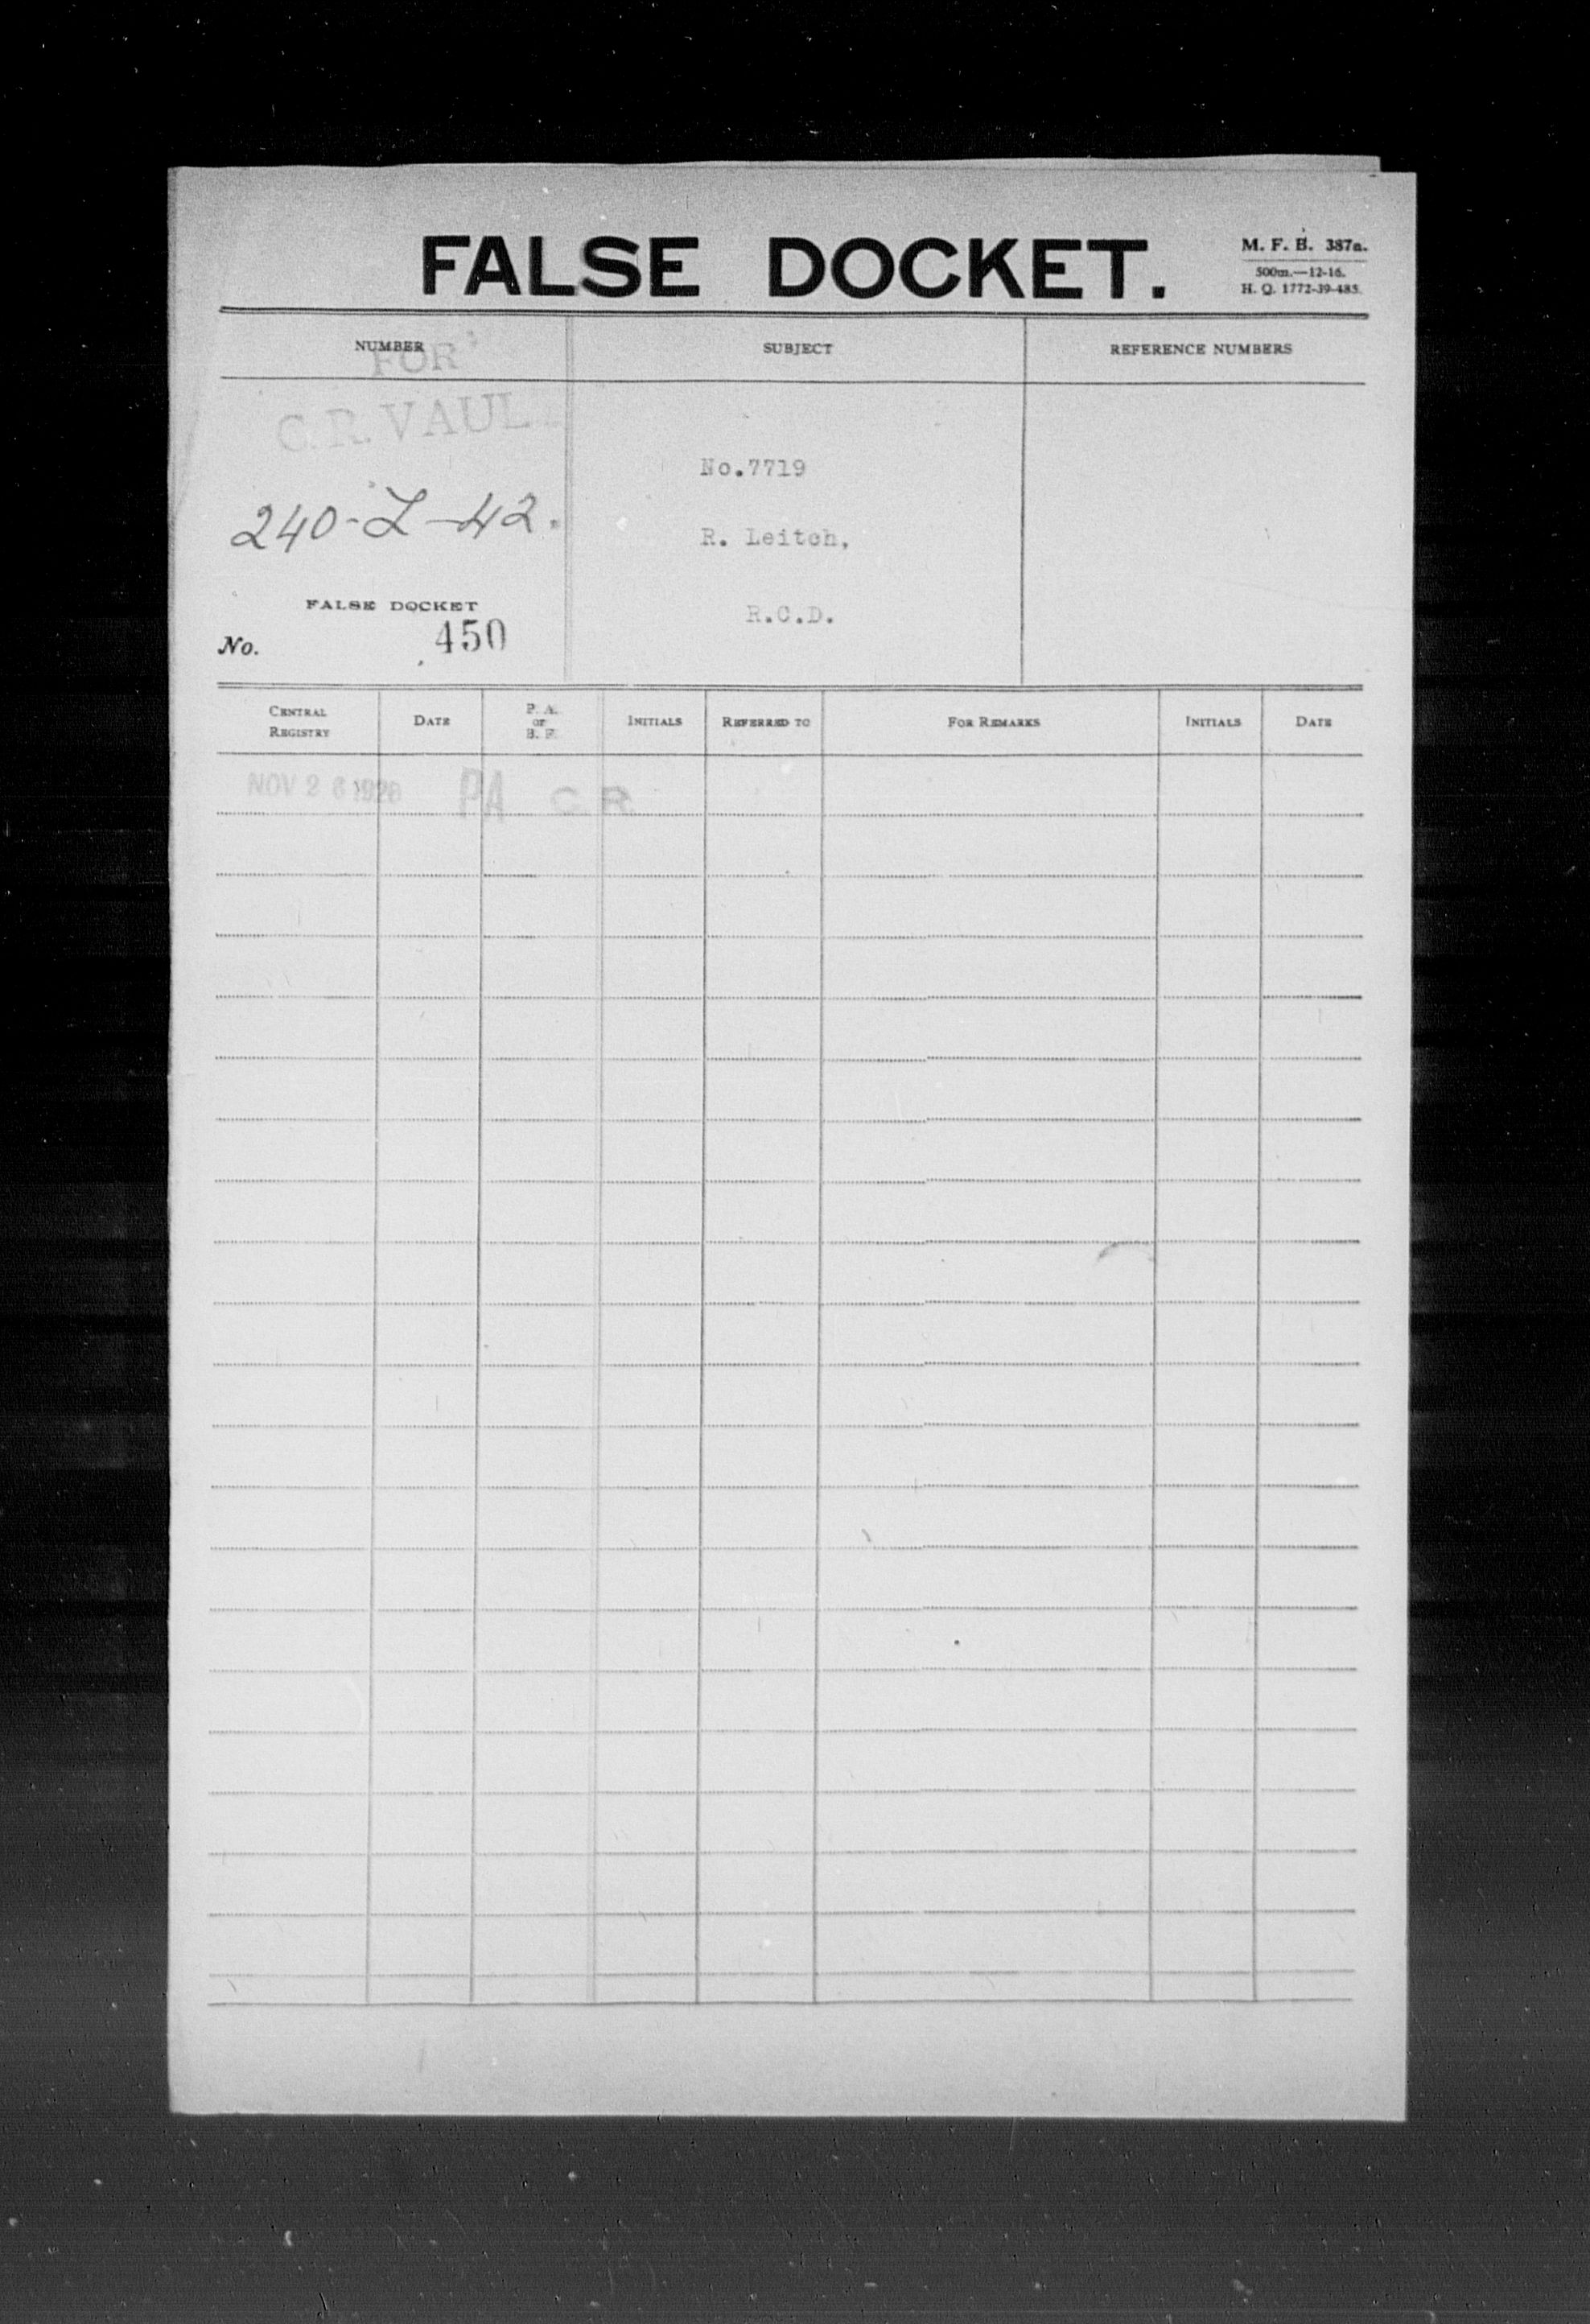 FALSE DOCKET.
M. F. B. 387a.
500m.—12-16.
H. Q. 1772-39-483.
NUMBER
SUBJECT
REFERENCE NUMBERS
FOR
C.R. VAUL
240-L-42.
No.7719
R. Leitch,
R.C.D.
FALSE DOCKET
No. 450
CENTRAL REGISTRY
DATE
P. A. or B. F.
INITIALS
REFERRED TO
FOR REMARKS
INITIALS
DATE
NOV 26 1920 PA C R